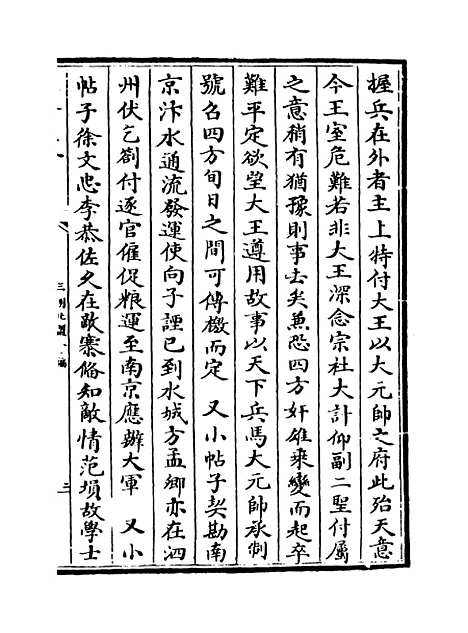 握兵在外者主上特付大王以大元帥之府此殆天意
今王室危難若非大王深念宗社大計仰副二聖付屬
之意稍有猶豫則事去矣兼恐四方奸雄乗變而起卒
難平定欲望大王遵用故事以天下兵馬大元帥承制
號召四方旬日之間可傳檄而定　又小帖子契勘南
京汴水通流發運使向子諲已到水城方孟卿亦在泗
州伏乞劄付逐官催促粮運至南京應辦大軍　又小
帖子徐文忠李恭佐久在敵寨偹知敵情范塤故學士
三朝北盟
三